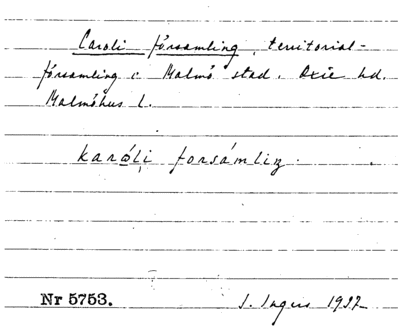 Caroli församling, territorial-
församling i Malmö stad. Oxie hd.
Malmöhus l.
karó̱li forsámliŋ.
Nr 5753.
J. Ingers 1932